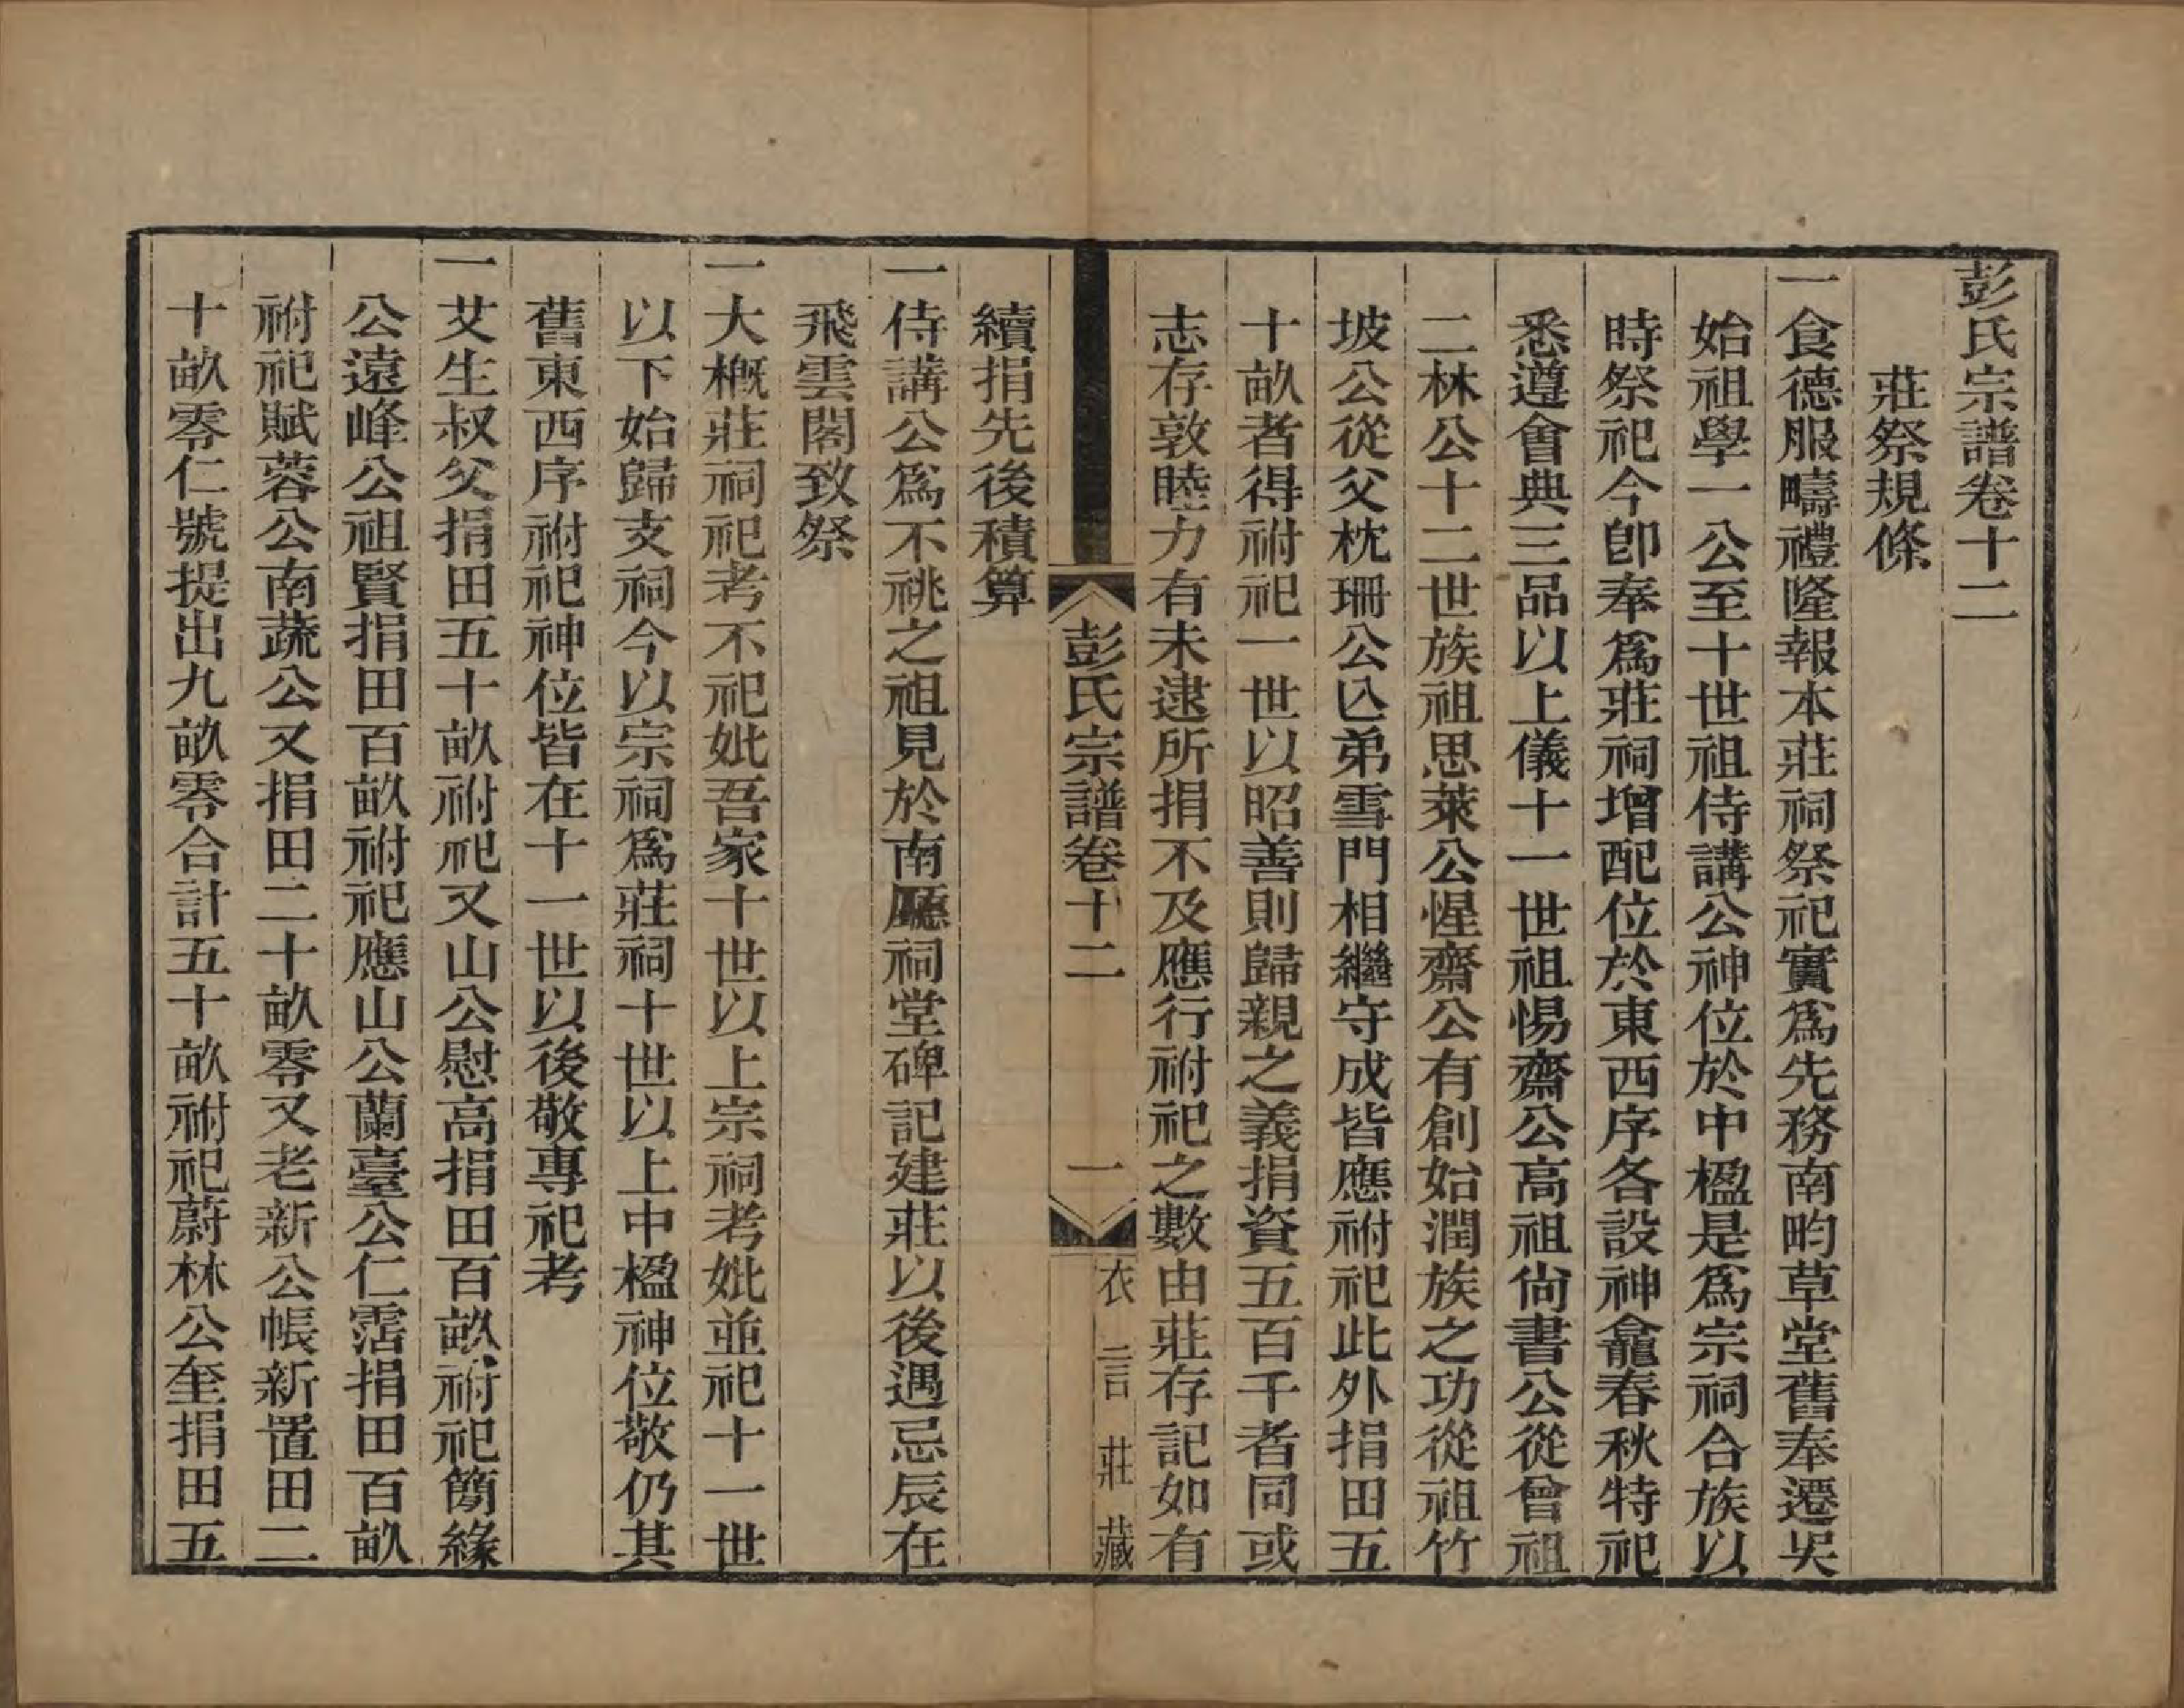 彭氏宗譜卷十二
莊祭規條
一食德服疇禮隆報本莊祠祭祀實爲先務南畇草堂舊奉遷吳
始祖學一公至十世祖侍講公神位於中楹是爲宗祠合族以
時祭祀今卽奉爲莊祠增配位於東西序各設神龕春秋特祀
悉遵會典三品以上儀十一世祖惕齋公高祖尙書公從曾祖
二林公十二世族祖思萊公惺齋公有創始潤族之功從祖竹
坡公從父枕珊公亾弟雪門相繼守成皆應祔祀此外捐田五
十畝者得祔祀一世以昭善則歸親之義捐資五百千者同或
志存敦睦力有未逮所捐不及應行祔祀之數由莊存記如有
續捐先後積算
彭氏宗譜卷十二 一 衣言莊藏
一侍講公爲不祧之祖見於南廳祠堂碑記建莊以後遇忌辰在
飛雲閣致祭
一大概莊祠祀考不祀妣吾家十世以上宗祠考妣並祀十一世
以下始歸支祠今以宗祠爲莊祠十世以上中楹神位敬仍其
舊東西序祔祀神位皆在十一世以後敬專祀考
一艾生叔父捐田五十畝祔祀又山公慰高捐田百畝祔祀簡緣
公遠峰公祖賢捐田百畝祔祀應山公蘭臺公仁霑捐田百畝
祔祀賦蓉公南蔬公又捐田二十畝零又老新公帳新置田二
十畝零仁號提出九畝零合計五十畝祔祀蔚林公奎捐田五